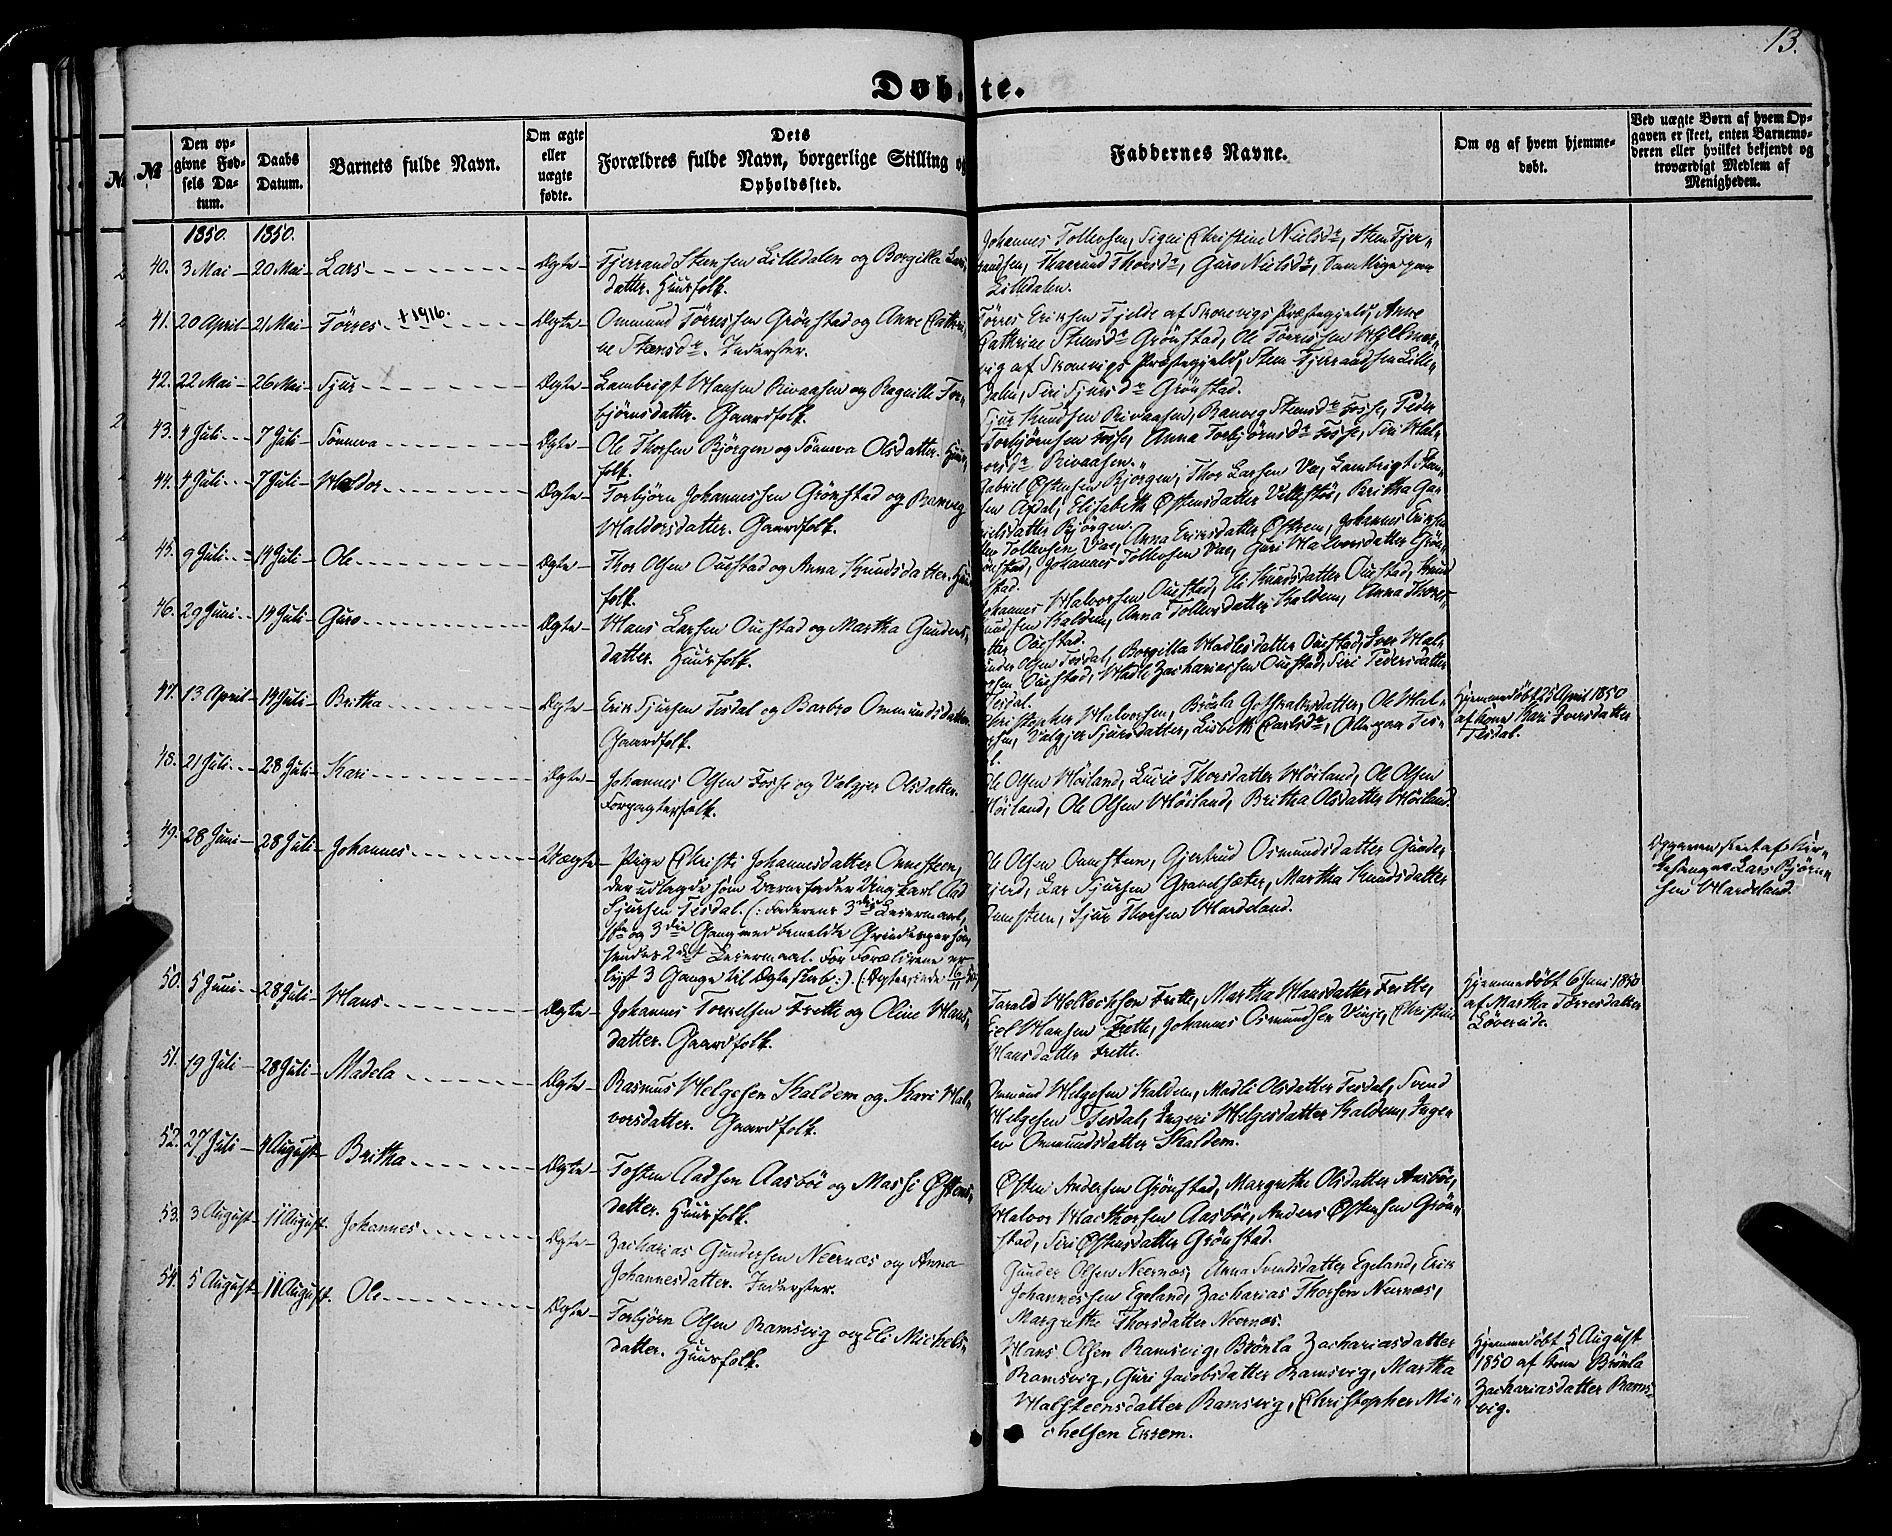 13.
Døbte.
№
Den op-
givne Fød-
sels Da-
tum.
Daabs
Datum.
Barnets fulde Navn.
Om ægte
eller
uægte
fødte.
Dets
Forældres fulde Navn, borgerlige Stilling og
Opholdssted.
Faddernes Navne.
Om og af hvem hjemme-
døbt.
Ved uægte Børn af hvem Op-
gaven er skeet, enten Barnemo-
deren eller hvilket bekjendt og
troværdigt Medlem af
Menigheden.
1850. 1850.
40. 3 Mai 20 Mai Lars Ægte Tjerrand Steensen Lilledalen og Borgilla Lars
datter. Huusfolk.
Johannes Tollevsen, Signi Christine Nielsdr, Steen Tjer-
randsen, Thorsdr, Guro Nielsdr,
Lilledalen.
41. 20 April 21 Mai Törres †1916. Ægte Ommund Törressen Grönstad og Anne Cathri-
ne Steensdr. Inderster.
Törres Eriksen Fjelde af Skonevigs Præstegjeld, Anne
Cathrine Steensdr Grönstad, Ole Törressen
vig af Skonevigs Præstegjeld, Steen Tjerrandsen Lille-
dalen, Siri Sjursdr Grönstad.
42. 22 Mai 26 Mai Sjur Ægte Lambrigt Hansen Rivaasen og Ragnille Tor-
björnsdatter. Gaardfolk.
Sjur Knudsen Rivaasen, Ranveg Steensdr Fosse, Peder
Torbjörnsen Fosse, Anna Torbjörnsdr Fosse, Siri Hal-
vorsdr Rivaasen.
43. 4 Juli 7 Juli Sönneva Ægte Ole Thorsen Bjørgen og Sönneva Olsdatter. Huus-
folk.
Gabriel Østensen Bjorgen, Thor Larsen Vae, Lambrigt Sten-
sen Afdal, Elisabeth Østensdatter Velkestöe, Britha Ga-
brielsdatter Bjørgen.
44. 4 Juli 7 Juli Haldor Ægte Torbjörn Johannessen Grönstad og Ranveg
Haldorsdatter. Gaardfolk.
Tollevsen Vae, Anna Eriksdatter Østrem, Johannes Eriksen
Grönstad, Johannes Tollevsen Vae, Guri Halvorsdatter Grön-
stad.
45. 9 Juli 14 Juli Ole Ægte Thor Olsen Oustad og Anna Knudsdatter. Huus
folk.
Johannes Halvorsen Oustad, Eli Knudsdatter Oustad, Knud
Knudsen Kaldem, Anna Tollevsdatter Kaldem, Anna Thors-
datter Oustad.
46. 29 Juni 14 Juli Guro Ægte Hans Larsen Oustad og Martha Gunders-
datter. Huusfolk.
Gunder Olsen Tesdal, Borgilla Hadlesdatter Oustad, Iver Hal-
vorsen Oustad, Hadle Zachariassen Oustad, Siri Pedersdatter
Tesdal.
47. 13 April 14 Juli Britha Ægte Erik Sjursen Tesdal og Barbro Ommundsdatter.
Gaardfolk.
Christopher Halvorsen, Brönla Gothalksdatter, Ole Hal-
vorsen, Valgjer Sjursdatter, Lisbeth Carlsdr, Alle paa Tes-
dal.
Hjemmedøbt 25 April 1850
af Kone Kari Iversdatter
Tesdal.
48. 21 Juli 28 Juli Kari Ægte Johannes Olsen Fosse og Valgjer Olsdatter.
Forpagterfolk.
Ole Olsen Höiland, Lucie Thorsdatter Höiland, Ole Olsen
Höiland, Ole Olsen Höiland, Britha Olsdatter Höiland.
49. 28 Juni 28 Juli Johannes Uægte Pige Christi Johannesdatter Onnesteen,
der udlagde som Barnefader Ungkarl Aad
Sjursen Tesdal. (: Faderens 3die Leiermaal,
1ste og 3die Gang med bemeldte Qvindesperson,
hendes 2det Leiermaal. For Forældrene er
lyst 3 Gange til Ægteskab :). (: Ægteviede 16/11 50)
Ole Olsen Onnesteen, Gjertrud Osmundsdatter Gunder-
gjerd, Lar Sjursen Grandsæter, Martha Knudsdatter
Onnesteen, Sjur Thorsen Hardeland.
Opgaven skeet af Kir-
kesanger Lars Bjørn-
sen Hardeland.
50. 5 Juni 28 Juli Hans Ægte Johannes Torrelsen Frette og Oline Hans-
datter. Gaardfolk.
Tarald Hellechsen Frette, Martha Hansdatter Frette,
Eiel Hansen Frette, Johannes Osmundsen Vinje, Christine
Hansdatter Frette.
Hjemmedøbt 6 Juni 1850
af Martha Tørresdatter
Løvereide.
51. 19 Juli 28 Juli Madela Ægte Rasmus Helgesen Kaldem og Kari Hal-
vorsdatter. Gaardfolk.
Ommund Helgesen Kaldem, Madli Olsdatter Tesdal, Svend
Helgesen Tesdal, Ingeri Helgesdatter Kaldem, Inge-
lev Ommundsdatter Kaldem.
52. 27 Juli 4 August Britha Ægte Tosten Aadsen Aasböe og Massi Østens-
datter. Huusfolk.
Østen Andersen Grönstad, Margrethe Olsdatter Aasböe,
Halvor Aasböe, Anders Østensen Grön-
stad, Siri Østensdatter Grönstad.
53. 3 August 11 August Johannes Ægte Zacharias Gundersen Neernæs og Anna
Johannesdatter. Inderster.
Gunder Olsen Neernæs, Anna Svendsdatter Egeland, Erik
Johannessen Egeland, Zacharias Thorsen Neernæs,
Margrethe Thorsdatter Neernæs.
54. 5 August 11 August Ole Ægte Torbjörn Olsen Ramsvig og Eli Michels-
datter. Huusfolk.
Hans Olsen Ramsvig, Brönla Zachariasdatter
Ramsvig, Guri Jacobsdatter Ramsvig, Martha
Halsteensdatter Ramsvig, Christopher Mi-
chelsen Essem.
Hjemmedøbt 5 August
1850 af Kone Brönla
Zachariasdatter Rams-
vig.